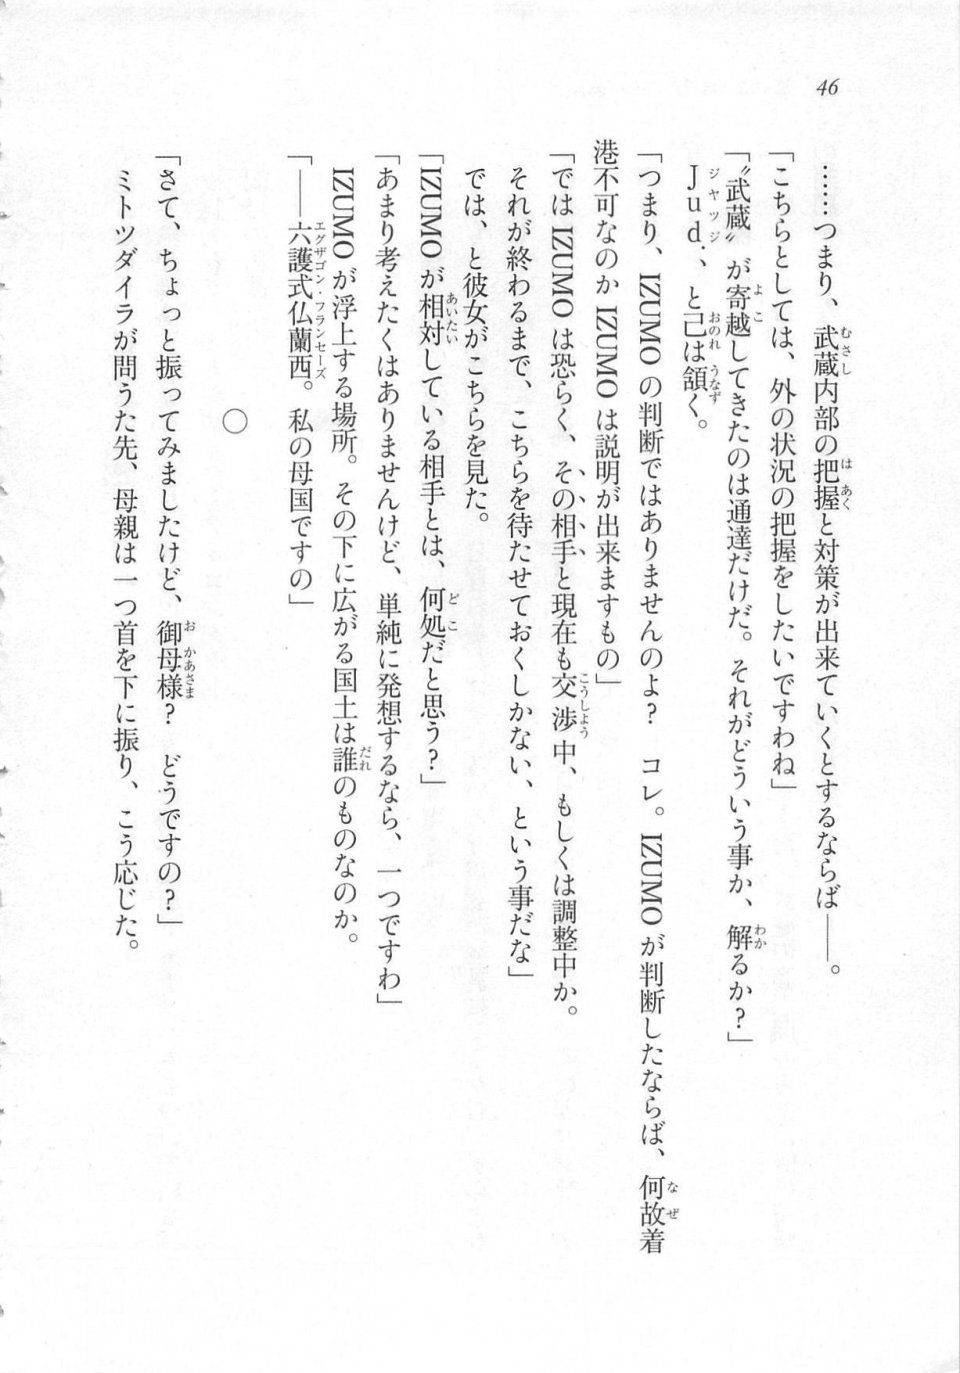 46
……つまり、武蔵内部の把握と対策が出来ていくとするならば――。
「こちらとしては、外の状況の把握をしたいですわね」
「〝武蔵〟が寄越してきたのは通達だけだ。それがどういう事か、解るか？」
Jud.、と己は頷く。
「つまり、IZUMOの判断ではありませんのよ？　コレ。IZUMOが判断したならば、何故着
港不可なのかIZUMOは説明が出来ますもの」
「ではIZUMOは恐らく、その相手と現在も交渉中、もしくは調整中か。
それが終わるまで、こちらを待たせておくしかない、という事だな」
では、と彼女がこちらを見た。
「IZUMOが相対している相手とは、何処だと思う？」
「あまり考えたくはありませんけど、単純に発想するなら、一つですわ」
IZUMOが浮上する場所。その下に広がる国土は誰のものなのか。
「――六護式仏蘭西。私の母国ですの」
○
「さて、ちょっと振ってみましたけど、御母様？　どうですの？」
ミトツダイラが問うた先、母親は一つ首を下に振り、こう応じた。